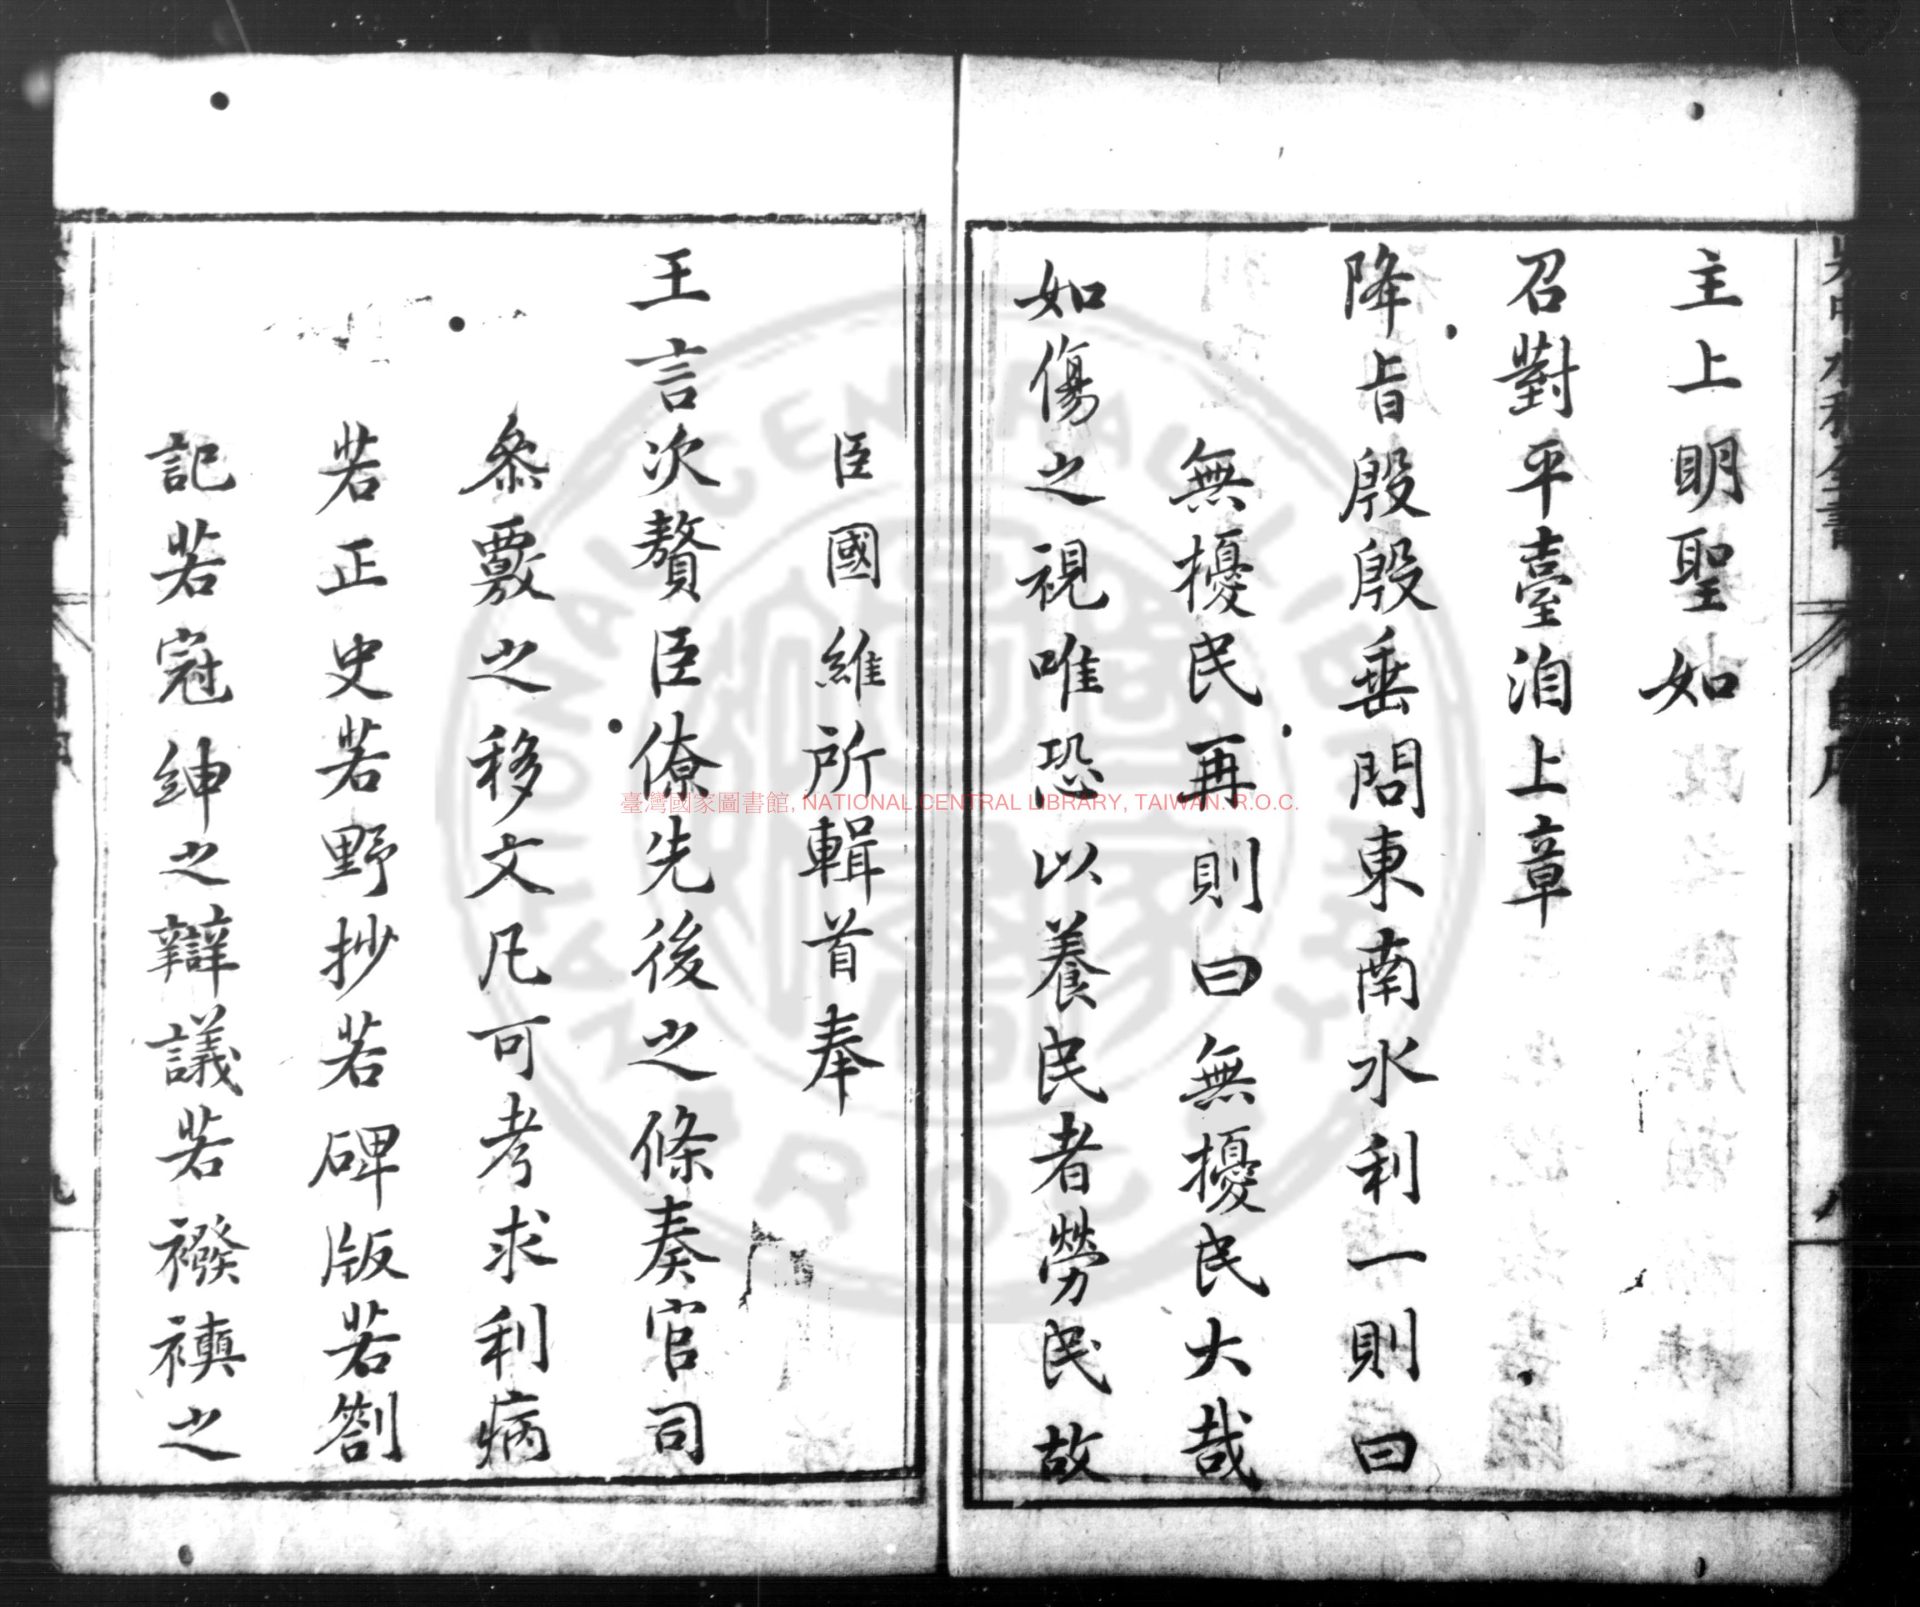 主上明聖如
召對平臺洎上章
降旨殷殷垂問東南水利一則曰
無擾民再則曰無擾民大哉
如傷之視唯恐以養民者勞民故
臣國維所輯首奉
王言次贅臣僚先後之條奏官司
叅覈之移文凡可考求利病
若正史若野抄若碑版若劄
記若冠紳之辯議若襏襫之
臺灣國家圖書館, NATIONAL CENTRAL LIBRARY, TAIWAN. R.O.C.
NATIONAL CENTRAL LIBRARY